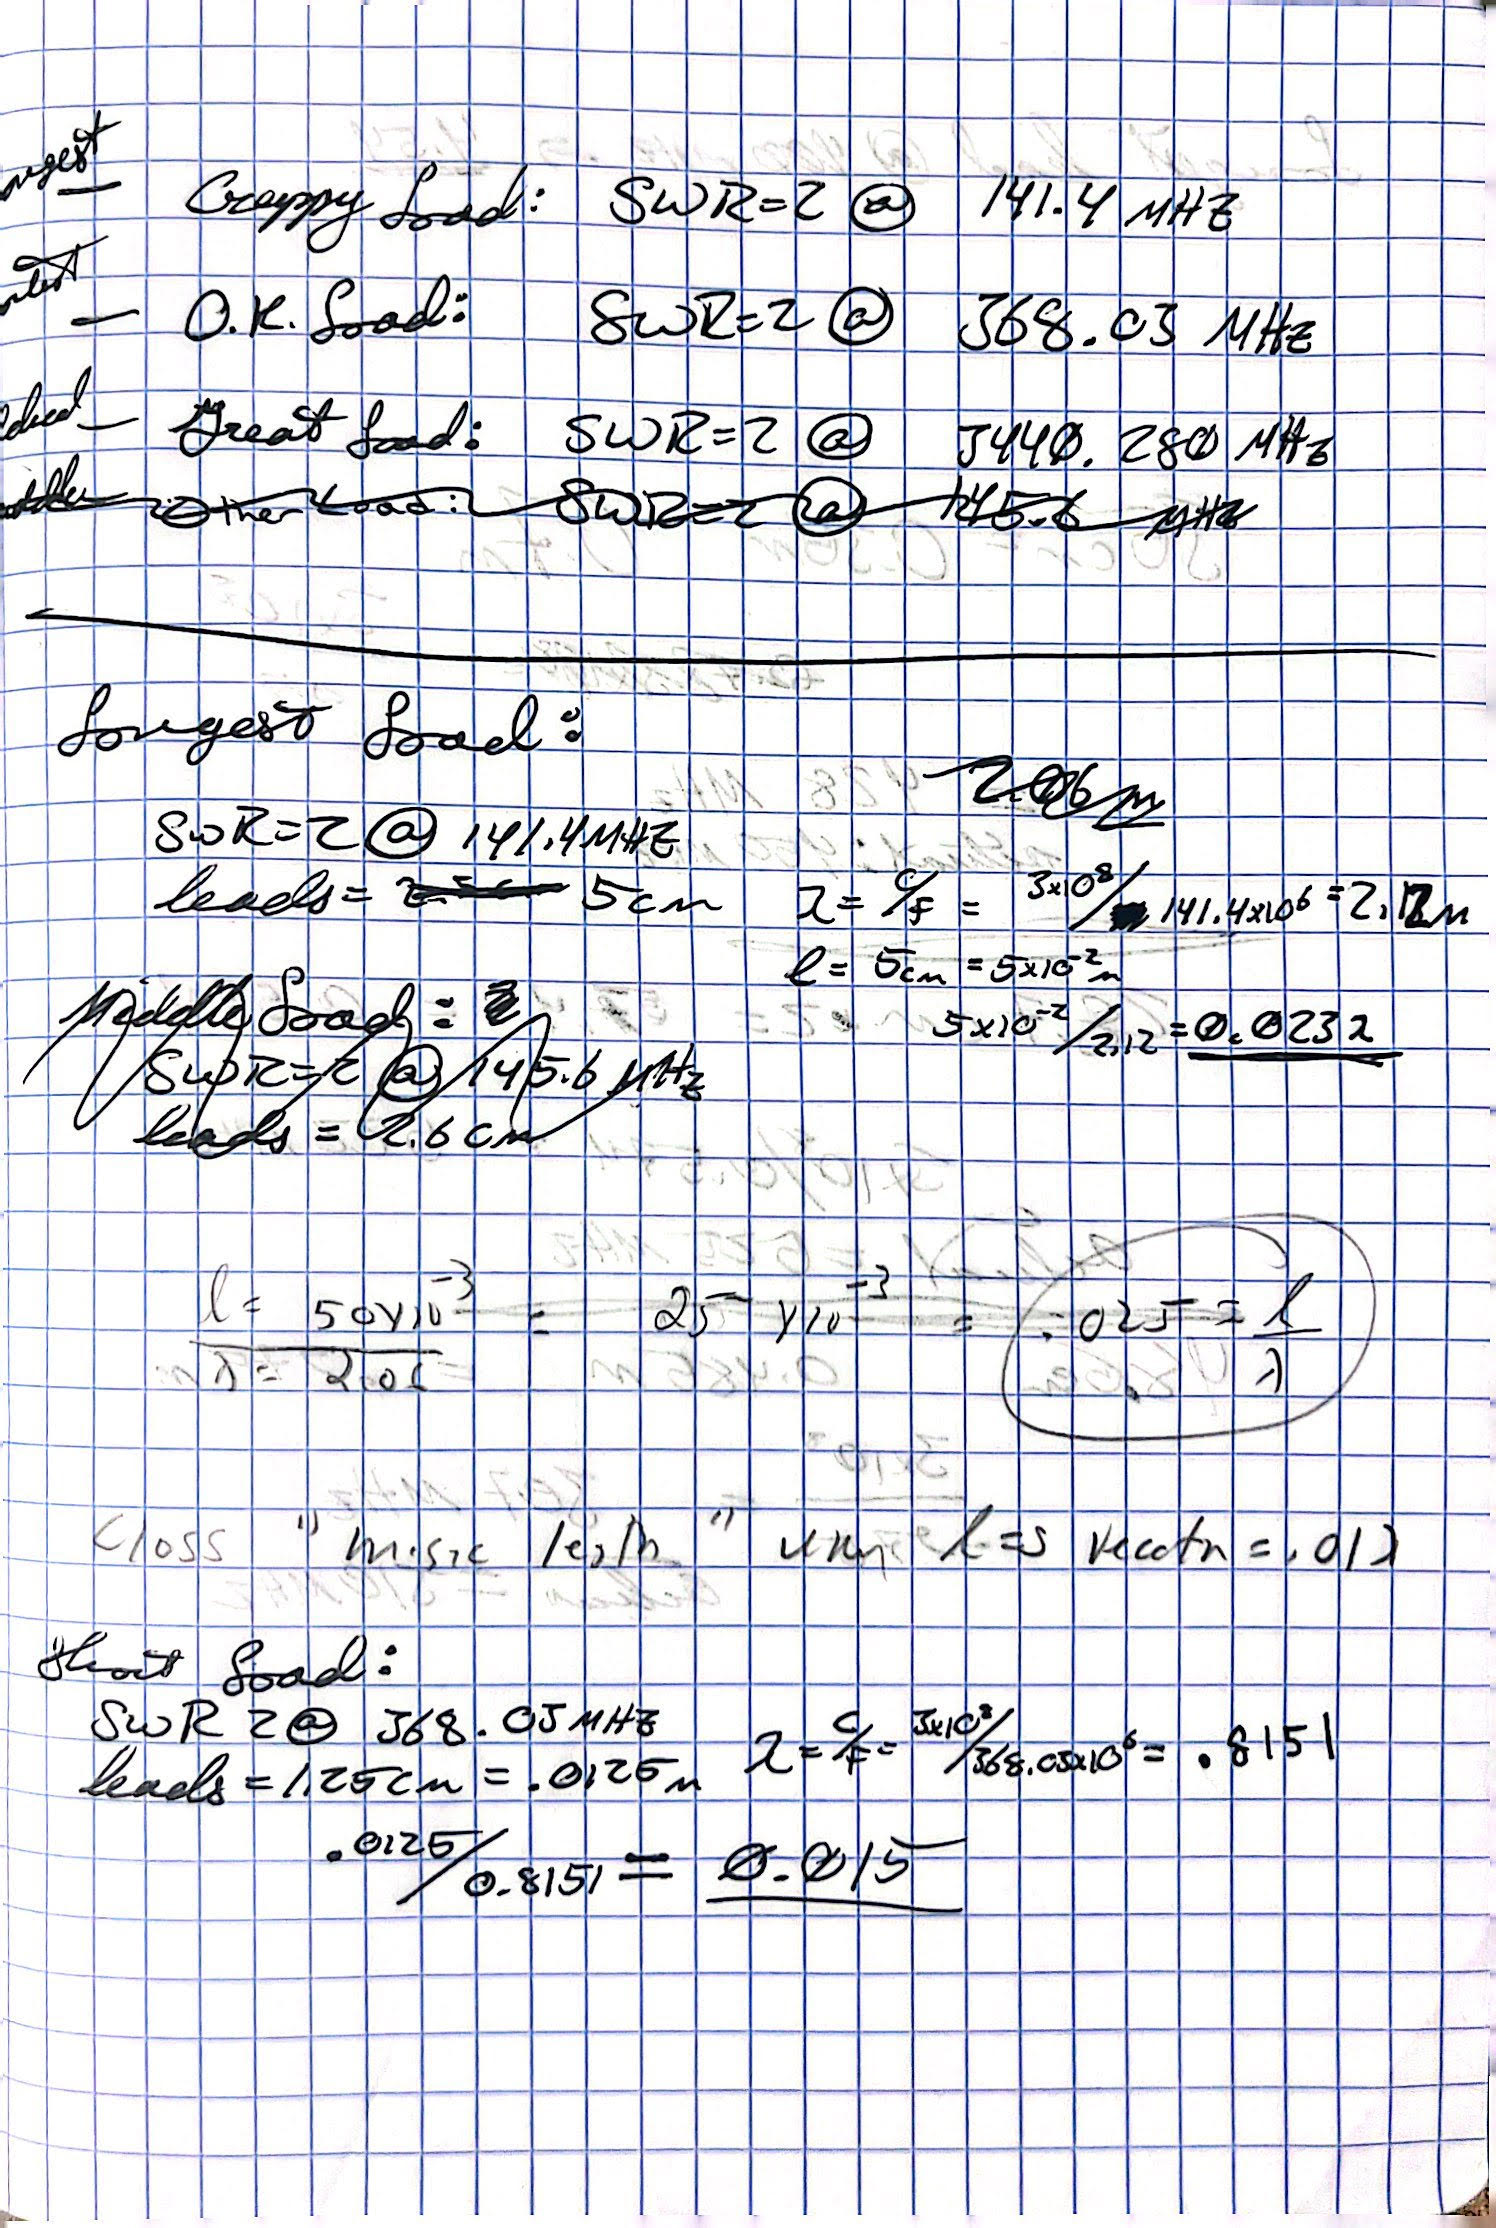 Crappy Load: SWR=2 @ 141.4 MHZ
O.K. Load: SWR=2 @ 368.03 MHZ
Great Load: SWR=2 @ 3440.280 MHZ
Other Load: SWR=2 @ 145.6 MHZ
Longest Load:
2.06m
SWR=2 @ 141.4MHZ
leads= 5cm
λ= c/F = 3x10⁸/141.4x10⁶ = 2.12m
l= 5cm = 5x10⁻²m
5x10⁻²/2.12 = 0.023λ
Middle Load:
SWR=2 @ 145.6 MHz
leads = 2.6cm
l= 50x10⁻³ / λ= 2.06 = 25 x10⁻³ = .025 = l/λ
Class "
" l = .01λ
Short Load:
SWR 2 @ 368.03MHZ
leads = 1.25cm = .0125m
λ= c/F = 3x10⁸/368.03x10⁶ = .8151
.0125/0.8151 = 0.015